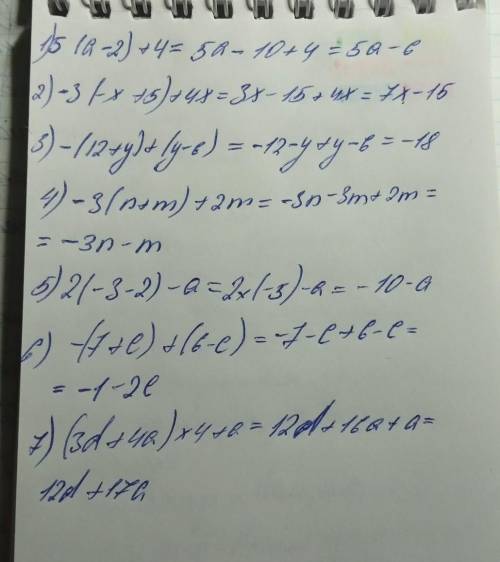 1) 5(a-2)+4= 5a-10+4 = 5a-6
2) -3(-x+5)+4x=3x-15+4x=7x-15
3) -(12+y)+(y-6) = -12-y+y-6 = -18
4) -3(n+m)+2m = -3n-3m+2m =
= -3n-m
5) 2(-3-2)-a=2x(-5)-a= -10-a
6) -(7+c)+(6-c) = -7-c+6-c=
= -1-2c
7) (3d+4a)x4+a=12d+16a+a=
12d+17a